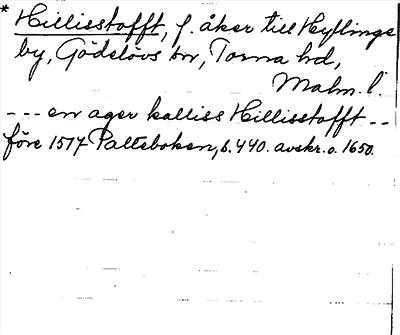 * Hillisstofft, f. åker till Hyllinge
by, Gödelövs sn, Torna hd,
Malm. l.
--- en ager kalliss Hillisstofft --
före 1517 Palteboken, s. 440. avskr. o. 1650.